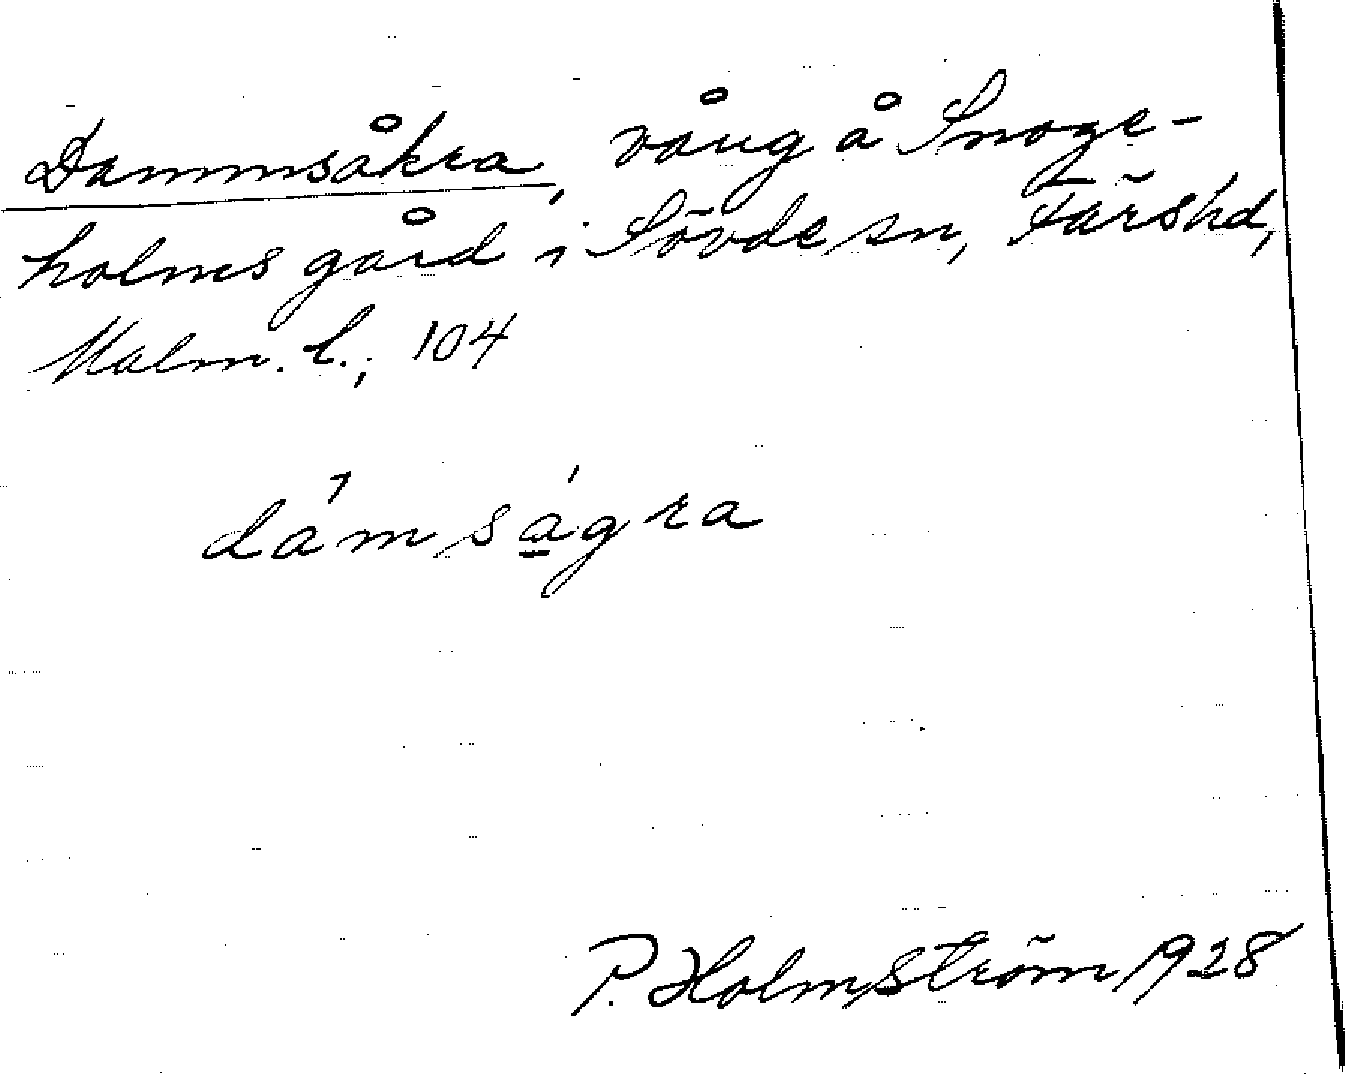 Dammsåkra, vång å Snoge-
holms gård i Sövde sn, Färs hd,
Malm. l., 104
dámságra
P. Holmström 1928